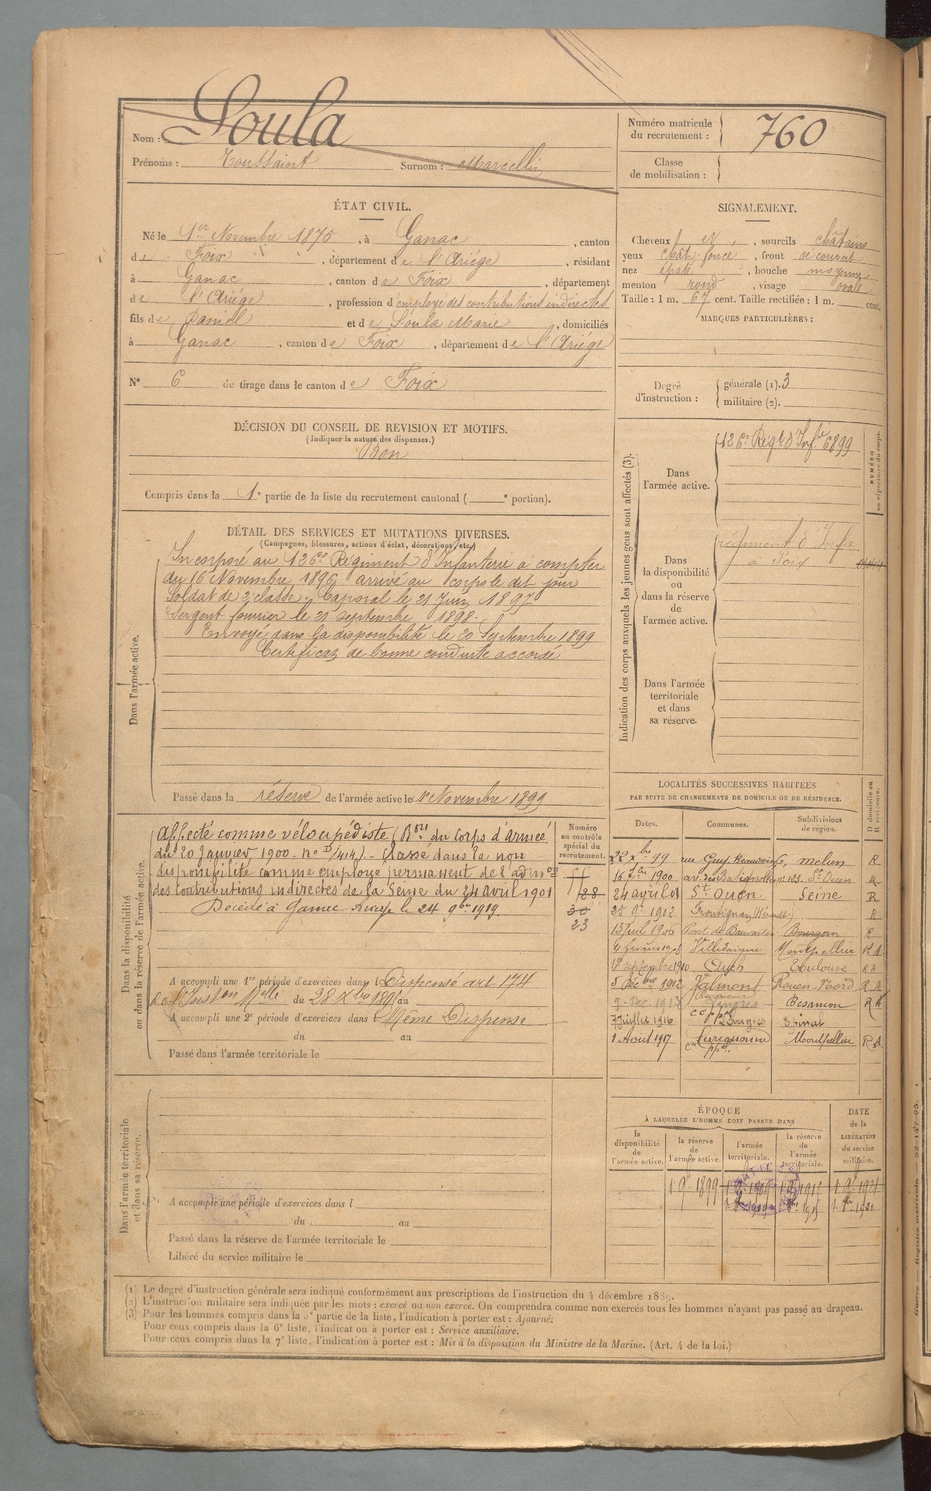 Nom : Soula
Prénoms : Toussaint Surnom : Marcellin
Numéro matricule du recrutement : 760
Classe de mobilisation :
ÉTAT CIVIL.
Né le 1er Novembre 1875, à Ganac, canton
de Foix, département de l'Ariége, résidant
à Ganac, canton de Foix, département
de l'Ariége, profession d'employé des contributions indirectes
fils de Daniel et de Soula Marie, domiciliés
à Ganac, canton de Foix, département de l'Ariége
N° 6 de tirage dans le canton de Foix
SIGNALEMENT.
Cheveux et, sourcils châtains
yeux chât foncé, front découvert
nez épaté, bouche moyenne
menton rond, visage ovale
Taille : 1 m. 67 cent. Taille rectifiée : 1 m. cent.
MARQUES PARTICULIÈRES :
Degré d'instruction : générale (1). 3
militaire (2).
DÉCISION DU CONSEIL DE REVISION ET MOTIFS.
(Indiquer la nature des dispenses.)
Bon
Compris dans la 1e partie de la liste du recrutement cantonal ( e portion).
DÉTAIL DES SERVICES ET MUTATIONS DIVERSES.
(Campagnes, blessures, actions d'éclat, décorations, etc.)
Dans l'armée active.
Incorporé au 126e Régiment d'Infanterie à compter
du 16 Novembre 1896 arrivé au corps le dit jour
Soldat de 2e classe. Caporal le 21 Juin 1897
Sergent fourrier le 21 septembre 1898.
Envoyé dans la disponibilité le 20 Septembre 1899
Certificat de bonne conduite accordé
Passé dans la réserve de l'armée active le 1er Novembre 1899
Indication des corps auxquels les jeunes gens sont affectés (3).
Dans l'armée active. 126e Régt d'Infie 6899
NUMÉRO au répertoire du corps.
Dans la disponibilité ou dans la réserve de l'armée active. régiment d'Infie
à Foix
Dans l'armée territoriale et dans sa réserve.
Dans la disponibilité ou dans la réserve de l'armée active.
Affecté comme vélocipédiste (Bon du Corps d'Armée
du 20 Janvier 1900 - No D/414) - Classé dans la non
disponibilité comme employé permanent de l'admon
des Contributions indirectes de la Seine du 24 avril 1901
Décédé à Ganac le 24 9bre 1919.
Numéro au contrôle spécial du recrutement.
28
30
23
A accompli une 1re période d'exercices dans l Dispensé art 174
du 28 au
A accompli une 2e période d'exercices dans l Même Dispense
du au
Passé dans l'armée territoriale le
LOCALITÉS SUCCESSIVES HABITÉES
PAR SUITE DE CHANGEMENTS DE DOMICILE OU DE RÉSIDENCE.
Dates. Communes. Subdivisions de région. D domicile ou R résidence.
22 Xbre 99 Melun R
16 1900 St Ouen R
24 avril 01 St Ouen Seine R
22 9bre 1912 Frontignan (Hérault) R
13 Juil 1906 Pont de Beauvoisin Bourgoin R
4 février 1908 Villeveyrac Montpellier R A
septembre 1910 Toulouse R A
5 Décbre 1912 Valmont Rouen Nord R A
2 Déc. 1913 Langres Besançon R A
7 Juillet 1916 Langres Epinal
1 Août 1917 Montpellier R A
Dans l'armée territoriale et dans sa réserve.
A accompli une période d'exercices dans l
du au
Passé dans la réserve de l'armée territoriale le
Libéré du service militaire le
ÉPOQUE
À LAQUELLE L'HOMME DOIT PASSER DANS
la disponibilité de l'armée active. la réserve de l'armée active. l'armée territoriale. la réserve de l'armée territoriale.
DATE de la LIBÉRATION du service militaire.
1 9e 1899
(1) Le degré d'instruction générale sera indiqué conformément aux prescriptions de l'instruction du 4 décembre 1889.
(2) L'instruction militaire sera indiquée par les mots : exercé ou non exercé. On comprendra comme non exercés tous les hommes n'ayant pas passé au drapeau.
(3) Pour les hommes compris dans la 5e partie de la liste, l'indication à porter est : Ajourné;
Pour ceux compris dans la 6e liste, l'indication à porter est : Service auxiliaire;
Pour ceux compris dans la 7e liste, l'indication à porter est : Mis à la disposition du Ministre de la Marine. (Art. 4 de la loi.)